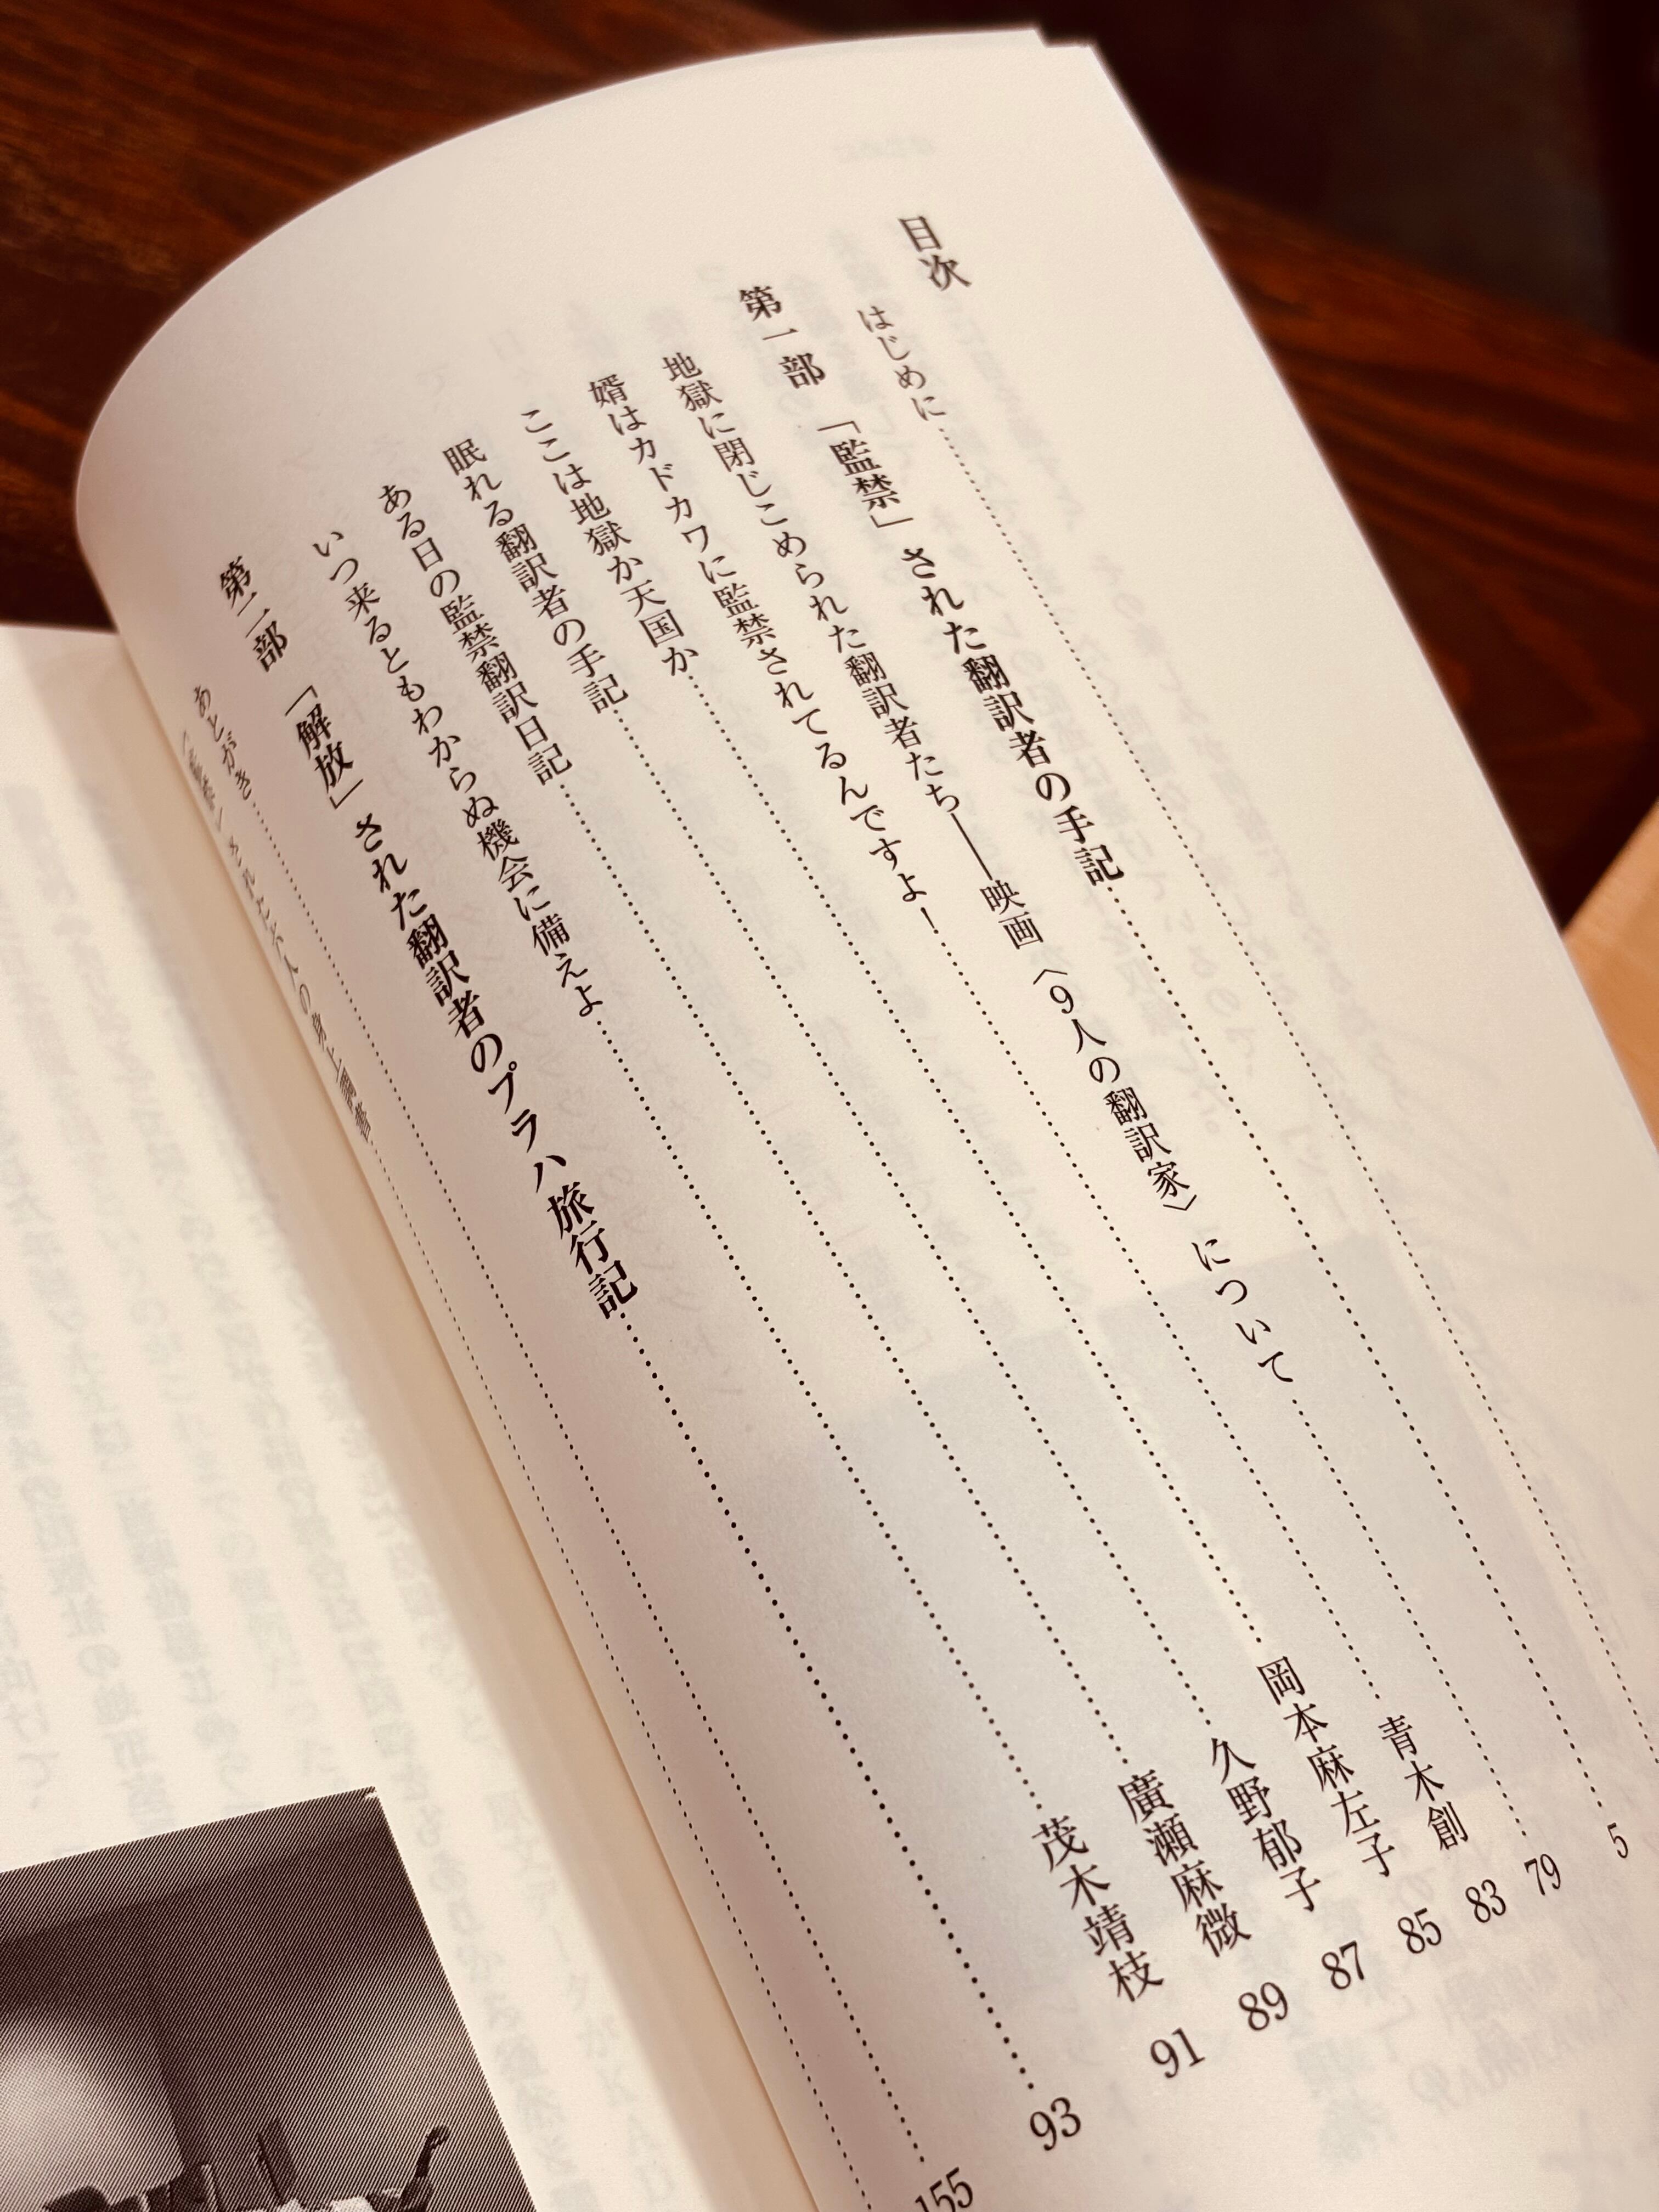 目次
はじめに
第一部 「監禁」された翻訳者の手記 5
地獄に閉じこめられた翻訳者たち――映画〈9人の翻訳家〉について 79
婿はカドカワに監禁されてるんですよ！ 青木創 83
ここは地獄か天国か 岡本麻左子 85
眠れる翻訳者の手記 久野郁子 87
ある日の監禁翻訳日記 廣瀬麻微 89
いつ来るともわからぬ機会に備えよ 茂木靖枝 91
第二部 「解放」された翻訳者のプラハ旅行記 93
あとがき 155
「監禁」された六人の身上調書